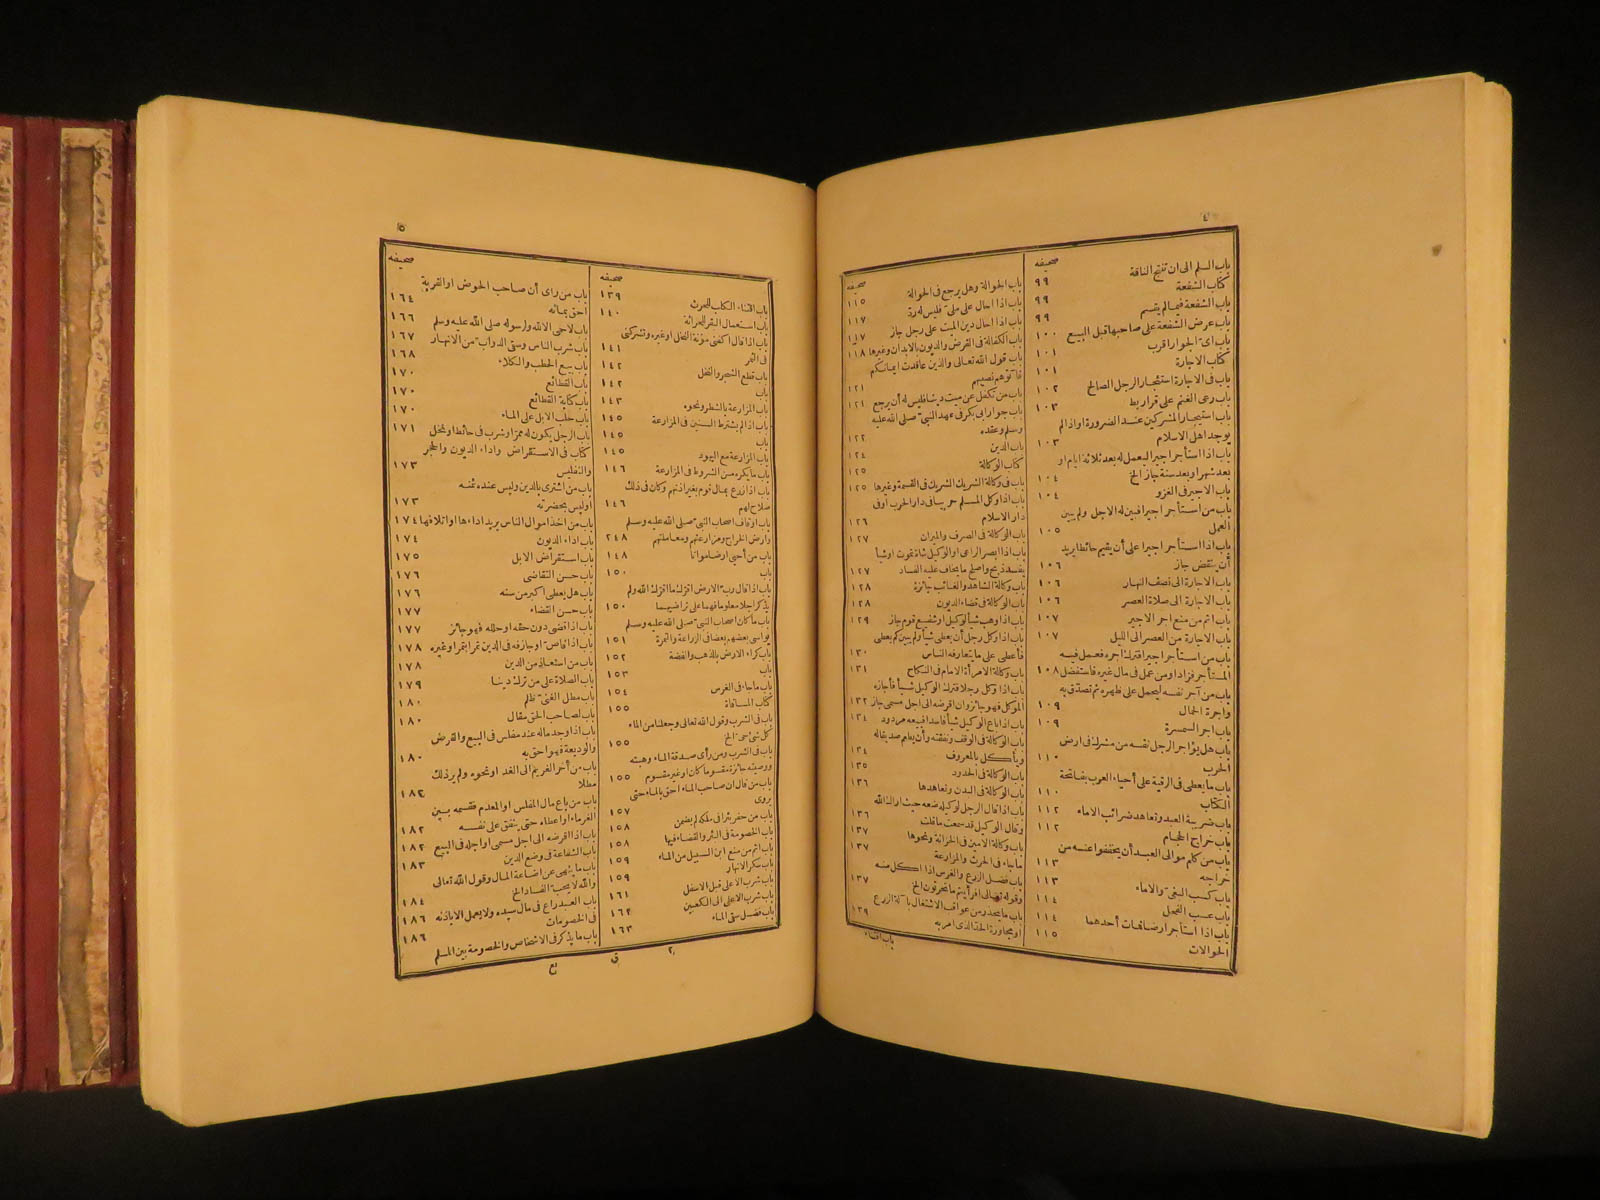 ٤
صحيفه
باب السلم الى ان تنتج الناقة ٩٩
كتاب الشفعة
باب الشفعة فيما لم يقسم ٩٩
باب عرض الشفعة على صاحبها قبل البيع ١٠٠
باب اى الجوار اقرب ١٠١
كتاب الاجارة ١٠١
باب فى الاجارة استئجار الرجل الصالح ١٠٢
باب رعى الغنم على قراريط ١٠٣
باب استيجار المشركين عند الضرورة او اذا لم
يوجد اهل الاسلام ١٠٣
باب اذا استأجر اجيرا ليعمل له بعد ثلاثة ايام او
بعد شهر او بعد سنة جاز الخ ١٠٤
باب الاجير فى الغزو ١٠٤
باب من استأجر اجيرا فبين له الاجل ولم يبين
العمل ١٠٥
باب اذا استأجر اجيرا على أن يقيم حائطا يريد
أن ينقض جاز ١٠٦
باب الاجارة الى نصف النهار ١٠٦
باب الاجارة الى صلاة العصر ١٠٦
باب اثم من منع اجر الاجير ١٠٧
باب الاجارة من العصر الى الليل ١٠٧
باب من استأجر اجيرا فترك اجره فعمل فيه
المستأجر فزاد او من عمل فى مال غيره فاستفضل ١٠٨
باب من آجر نفسه ليحمل على ظهره ثم تصدق به
واجرة الحمال ١٠٩
باب اجر السمسرة ١٠٩
باب هل يؤاجر الرجل نفسه من مشرك فى ارض
الحرب ١١٠
باب ما يعطى فى الرقية على أحياء العرب بفاتحة
الكتاب ١١٠
باب ضريبة العبد وتعاهد ضرائب الاماء ١١٢
باب خراج الحجام ١١٢
باب من كلم موالى العبد أن يخففوا عنه من
خراجه ١١٣
باب كسب البغى والاماء ١١٣
باب عسب الفحل ١١٤
باب اذا استأجر ارضا فمات أحدهما ١١٤
الحوالات ١١٥
صحيفه
باب الحوالة وهل يرجع فى الحوالة ١١٥
باب اذا احال على ملى فليس له رد ١١٧
باب اذا احال دين الميت على رجل جاز ١١٧
باب الكفالة فى القرض والديون بالابدان وغيرها ١١٨
باب قول الله تعالى والذين عاقدت ايمانكم
فآتوهم نصيبهم ١٢١
باب من تكفل عن ميت دينا فليس له أن يرجع ١٢١
باب جوار ابى بكر فى عهد النبى صلى الله عليه
وسلم وعقده ١٢٢
باب الدين ١٢٤
كتاب الوكالة ١٢٥
باب فى وكالة الشريك الشريك فى القسمة وغيرها ١٢٥
باب اذا وكل المسلم حربيا فى دار الحرب أو فى
دار الاسلام ١٢٦
باب الوكالة فى الصرف والميزان ١٢٧
باب اذا ابصر الراعى او الوكيل شاة تموت او شيأ
يفسد ذبح واصلح ما يخاف عليه الفساد ١٢٧
باب وكالة الشاهد والغائب جائزة ١٢٨
باب الوكالة فى قضاء الديون ١٢٨
باب اذا وهب شيأ لوكيل او شفيع قوم جاز ١٢٩
باب اذا وكل رجل أن يعطى شيأ ولم يبين كم يعطى
فأعطى على ما يتعارفه الناس ١٣٠
باب وكالة الامرأة الامام فى النكاح ١٣١
باب اذا وكل رجلا فترك الوكيل شيأ فأجازه
الموكل فهو جائز وان اقرضه الى اجل مسمى جاز ١٣٢
باب اذا باع الوكيل شيأ فاسدا فبيعه مردود ١٣٤
باب الوكالة فى الوقف ونفقته وأن يطعم صديقا له
ويأكل بالمعروف ١٣٤
باب الوكالة فى الحدود ١٣٥
باب الوكالة فى البدن وتعاهدها ١٣٦
باب اذا قال الرجل لوكيله ضعه حيث اراك الله
وقال الوكيل قد سمعت ما قلت ١٣٦
باب وكالة الامين فى الخزانة ونحوها ١٣٧
ما جاء فى الحرث والمزارعة ١٣٧
باب فضل الزرع والغرس اذا اكل منه
وقوله تعالى افرأيتم ما تحرثون الخ ١٣٧
باب ما يحذر من عواقب الاشتغال بآلة الزرع
او مجاوزة الحد الذى امر به ١٣٩
باب اقتناء
٥
صحيفه
باب اقتناء الكلب للحرث ١٣٩
باب استعمال البقر للحراثة ١٤٠
باب اذا قال اكفنى مؤنة النخل او غيره وتشركنى
فى الثمر ١٤١
باب قطع الشجر والنخل ١٤٢
باب ١٤٢
باب المزارعة بالشطر ونحوه ١٤٣
باب اذا لم يشترط السنين فى المزارعة ١٤٥
باب ١٤٥
باب المزارعة مع اليهود ١٤٥
باب ما يكره من الشروط فى المزارعة ١٤٦
باب اذا زرع بمال قوم بغير اذنهم وكان فى ذلك
صلاح لهم ١٤٦
باب اوقاف اصحاب النبى صلى الله عليه وسلم
وارض الخراج ومزارعتهم ومعاملتهم ٢٤٨
باب من أحيى ارضا مواتا ١٤٨
باب ١٥٠
باب اذا قال رب الارض اقرك ما اقرك الله ولم
يذكر اجلا معلوما فهما على تراضيهما ١٥٠
باب ما كان اصحاب النبى صلى الله عليه وسلم
يواسى بعضهم بعضا فى الزراعة والثمرة ١٥١
باب كراء الارض بالذهب والفضة ١٥٢
باب ١٥٣
باب ما جاء فى الغرس ١٥٤
كتاب المساقاة ١٥٥
باب فى الشرب وقول الله تعالى وجعلنا من الماء
كل شئ حى الخ ١٥٥
باب فى الشرب ومن رأى صدقة الماء وهبته
ووصيته جائزة مقسوما كان او غير مقسوم ١٥٥
باب من قال ان صاحب الماء احق بالماء حتى
يروى ١٥٧
باب من حفر بئرا فى ملكه لم يضمن ١٥٨
باب الخصومة فى البئر والقضاء فيها ١٥٨
باب اثم من منع ابن السبيل من الماء ١٥٩
باب سكر الانهار ١٥٩
باب شرب الاعلى قبل الاسفل ١٦١
باب شرب الاعلى الى الكعبين ١٦٢
باب فضل سقى الماء ١٦٣
صحيفه
باب من رأى أن صاحب الحوض او القربة
احق بمائه ١٦٤
باب لا حمى الا لله ولرسوله صلى الله عليه وسلم ١٦٦
باب شرب الناس وسقى الدواب من الانهار ١٦٧
باب بيع الحطب والكلاء ١٦٨
باب القطائع ١٧٠
باب كتابة القطائع ١٧٠
باب حلب الابل على الماء ١٧٠
باب الرجل يكون له ممر او شرب فى حائط او نخل ١٧١
كتاب فى الاستقراض واداء الديون والحجر
والتفليس ١٧٣
باب من اشترى بالدين وليس عنده ثمنه
أو ليس بحضرته ١٧٣
باب من اخذ اموال الناس يريد اداءها او اتلافها ١٧٤
باب اداء الديون ١٧٤
باب استقراض الابل ١٧٥
باب حسن التقاضى ١٧٦
باب هل يعطى اكبر من سنه ١٧٦
باب حسن القضاء ١٧٧
باب اذا قضى دون حقه او حلله فهو جائز ١٧٧
باب اذا قاص او جازفه فى الدين تمرا بتمر او غيره ١٧٨
باب من استعاذ من الدين ١٧٨
باب الصلاة على من ترك دينا ١٧٩
باب مطل الغنى ظلم ١٨٠
باب لصاحب الحق مقال ١٨٠
باب اذا وجد ماله عند مفلس فى البيع والقرض
والوديعة فهو احق به ١٨٠
باب من أخر الغريم الى الغد او نحوه ولم ير ذلك
مطلا ١٨٢
باب من باع مال المفلس او المعدم فقسمه بين
الغرماء او اعطاه حتى ينفق على نفسه ١٨٢
باب اذا اقرضه الى اجل مسمى او اجله فى البيع ١٨٢
باب الشفاعة فى وضع الدين ١٨٣
باب ما ينهى عن اضاعة المال وقول الله تعالى
والله لا يحب الفساد الخ ١٨٤
باب العبد راع فى مال سيده ولا يعمل الا باذنه ١٨٦
فى الخصومات
باب ما يذكر فى الاشخاص والخصومة بين المسلم ١٨٦
٢ ق ع